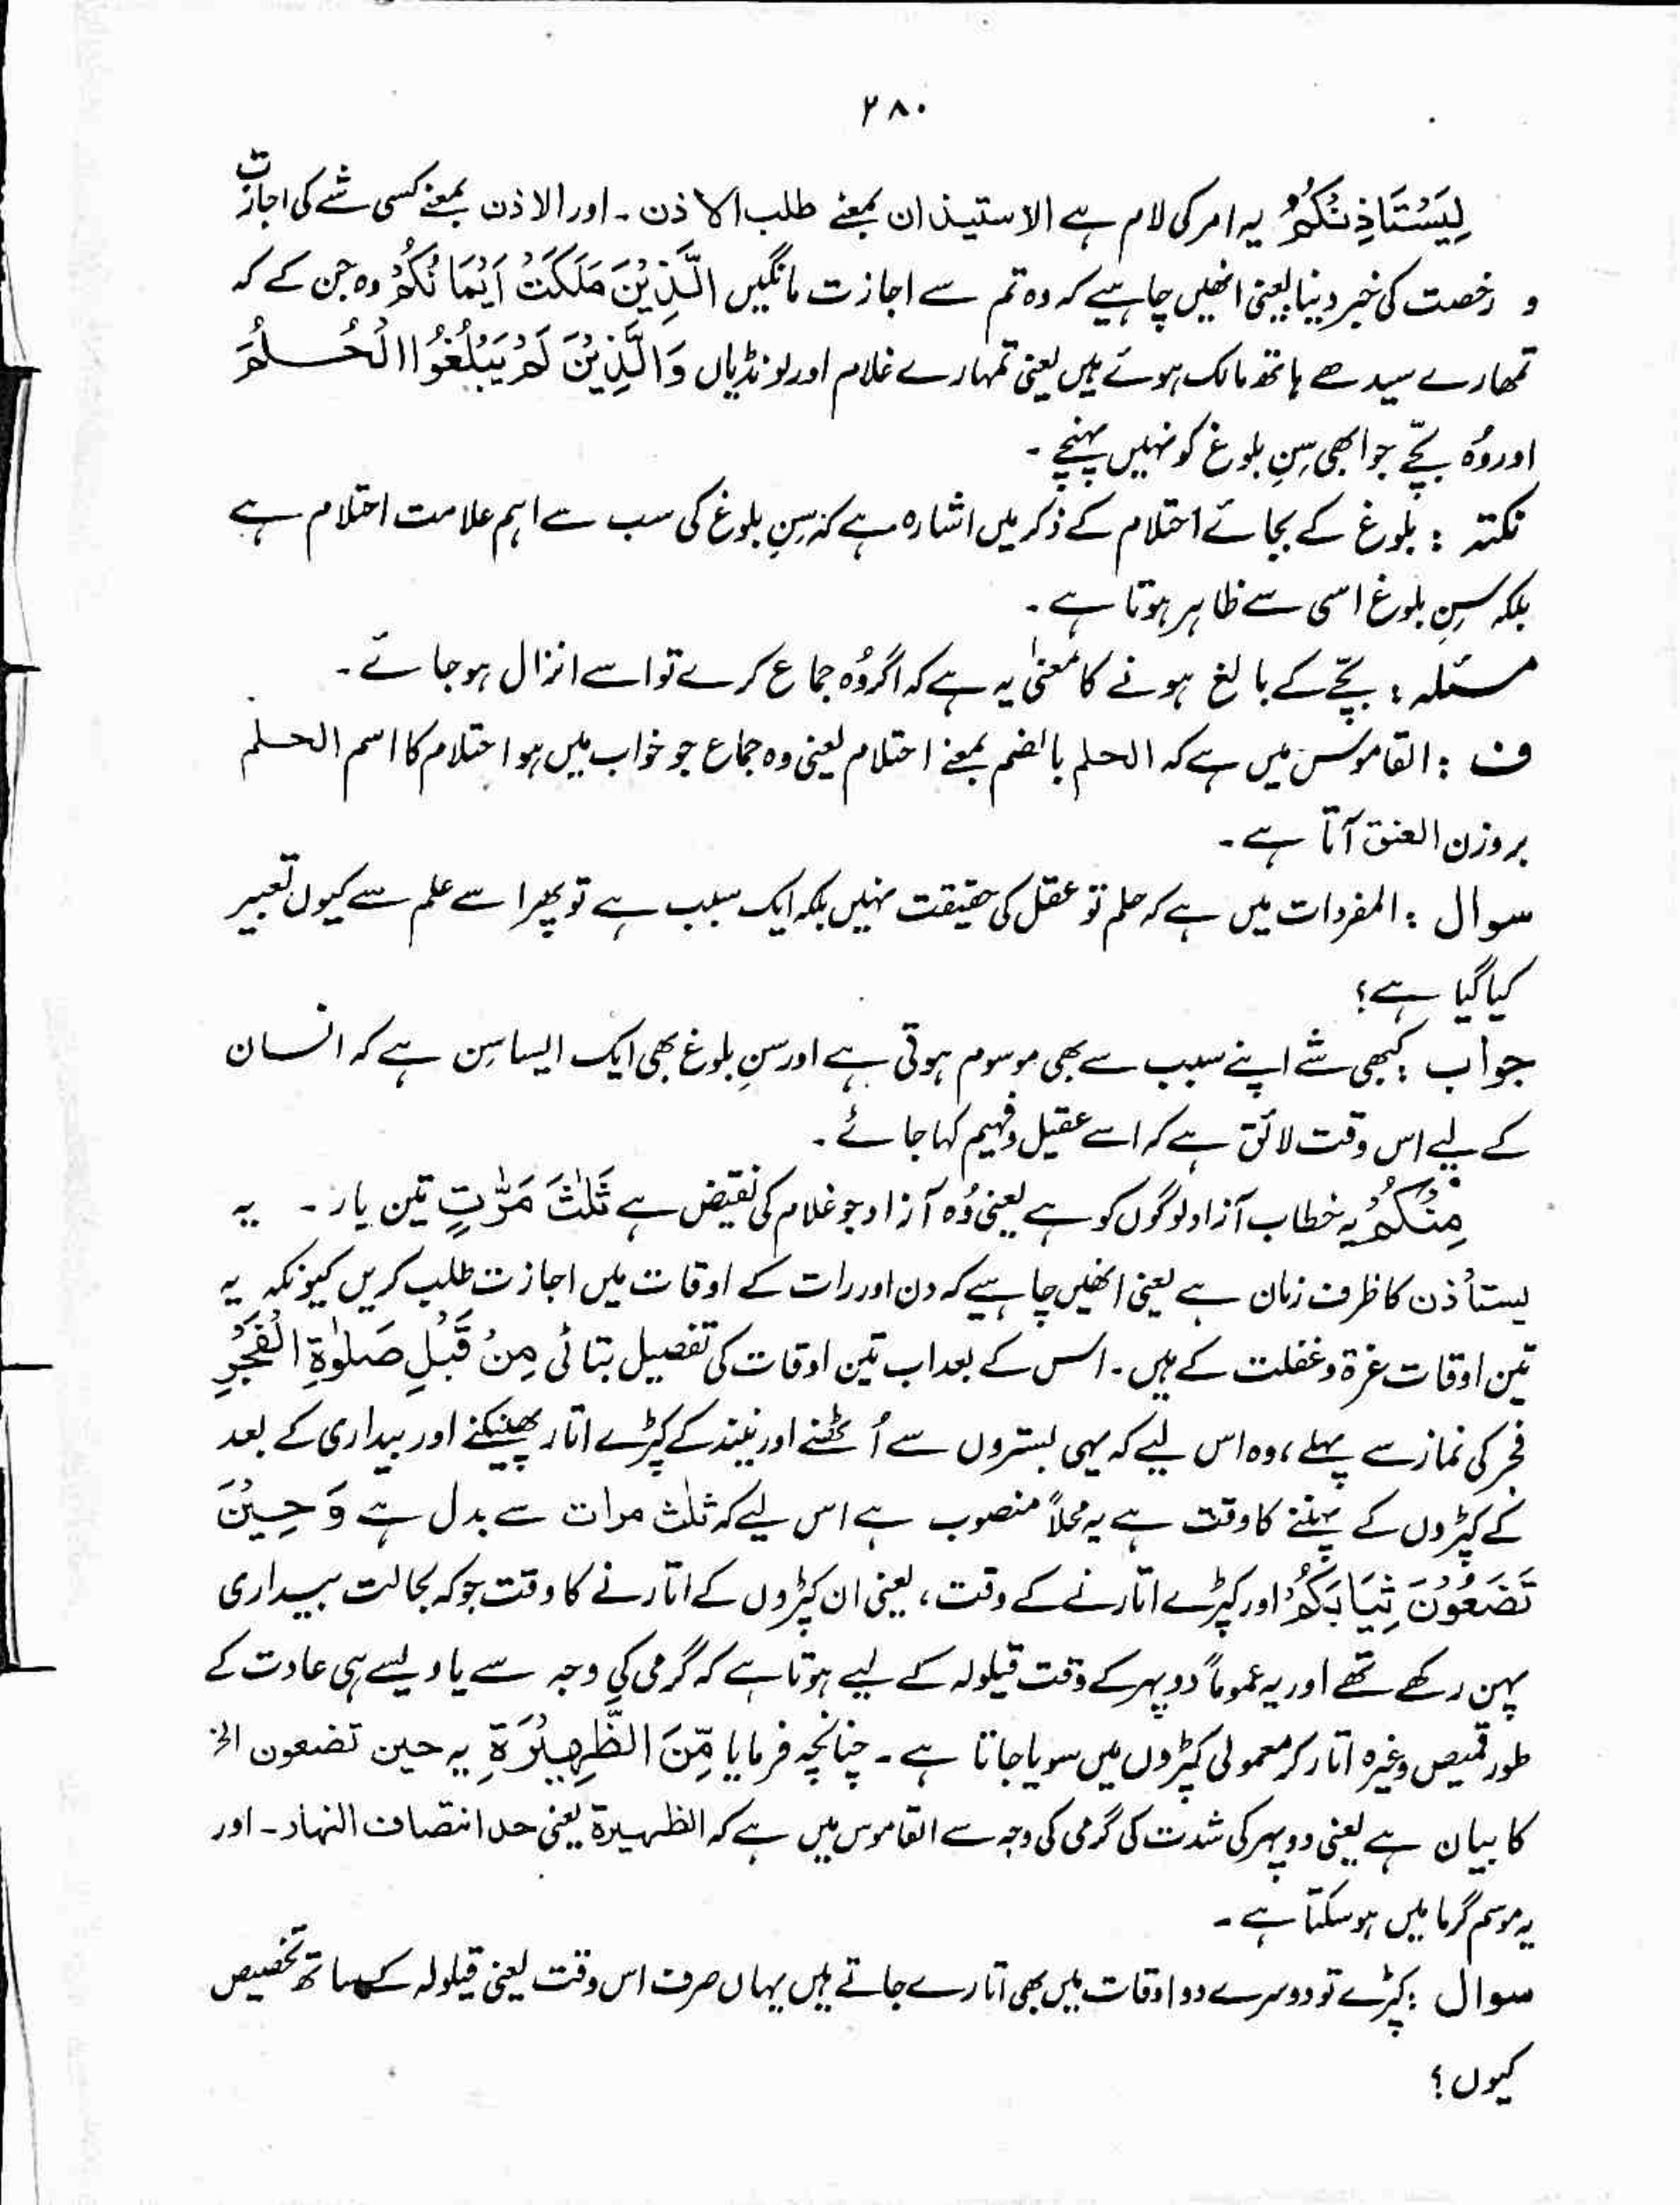 ۲۸۰
لِیَسْتَاْذِنْکُمُ یہ امر کی لام ہے الاستیذان بمعنے طلب الاذن ۔ اور الاذن بمعنے کسی شے کی اجازت
و رخصت کی خبر دینا یعنی انھیں چاہیے کہ وہ تم سے اجازت مانگیں الَّذِیْنَ مَلَکَتْ اَیْمَانُکُمْ وہ جن کے کہ
تمھارے سیدھے ہاتھ مالک ہوئے ہیں یعنی تمہارے غلام اور لونڈیاں وَالَّذِیْنَ لَمْ یَبْلُغُوا الْحُلُمَ
اور وُہ بچّے جو ابھی سِنِ بلوغ کو نہیں پہنچے ۔
نکتہ : بلوغ کے بجائے احتلام کے ذکر میں اشارہ ہے کہ سِنِ بلوغ کی سب سے اہم علامت احتلام ہے
بلکہ سِنِ بلوغ اسی سے ظاہر ہوتا ہے ۔
مسئلہ : بچّے کے بالغ ہونے کا معنیٰ یہ ہے کہ اگر وُہ جماع کرے تو اسے انزال ہو جائے ۔
ف : القاموس میں ہے کہ الحلم بالضم بمعنے احتلام یعنی وہ جماع جو خواب میں ہو احتلام کا اسم الحلم
بروزن العنق آتا ہے ۔
سوال : المفردات میں ہے کہ حلم تو عقل کی حقیقت نہیں بلکہ ایک سبب ہے تو پھر اسے علم سے کیوں تعبیر
کیا گیا ہے ؟
جواب : کبھی شے اپنے سبب سے بھی موسوم ہوتی ہے اور سنِ بلوغ بھی ایک ایسا سِن ہے کہ انسان
کے لیے اس وقت لائق ہے کہ اسے عقیل و فہیم کہا جائے ۔
مِنْکُمْ یہ خطاب آزاد لوگوں کو ہے یعنی وُہ آزاد جو غلام کی نقیض ہے ثَلٰثَ مَرّٰتٍ تین بار ۔ یہ
یستأذن کا ظرف زمان ہے یعنی انھیں چاہیے کہ دن اور رات کے اوقات میں اجازت طلب کریں کیونکہ یہ
تین اوقات غرۃ و غفلت کے ہیں ۔ اس کے بعد اب تین اوقات کی تفصیل بتائی مِنْ قَبْلِ صَلٰوةِ الْفَجْرِ
فجر کی نماز سے پہلے ، وہ اس لیے کہ یہی بستروں سے اُٹھنے اور نیند کے کپڑے اتار پھینکنے اور بیداری کے بعد
کے کپڑوں کے پہننے کا وقت ہے یہ محلاً منصوب ہے اس لیے کہ ثلٰث مرات سے بدل ہے وَحِیْنَ
تَضَعُوْنَ ثِیَابَکُمْ اور کپڑے اتارنے کے وقت ، یعنی ان کپڑوں کے اتارنے کا وقت جو کہ بحالت بیداری
پہن رکھے تھے اور یہ عموماً دوپہر کے وقت قیلولہ کے لیے ہوتا ہے کہ گرمی کی وجہ سے یا ویسے ہی عادت کے
طور قمیص وغیرہ اتار کر معمولی کپڑوں میں سویا جاتا ہے ۔ چنانچہ فرمایا مِّنَ الظَّهِیْرَةِ یہ حین تضعون الخ
کا بیان ہے یعنی دوپہر کی شدت کی گرمی کی وجہ سے القاموس میں ہے کہ الظهیرة یعنی حد انتصاف النهار ۔ اور
یہ موسم گرما میں ہو سکتا ہے ۔
سوال : کپڑے تو دوسرے دو اوقات میں بھی اتارے جاتے ہیں یہاں صرف اس وقت یعنی قیلولہ کے ساتھ تخصیص
کیوں ؟